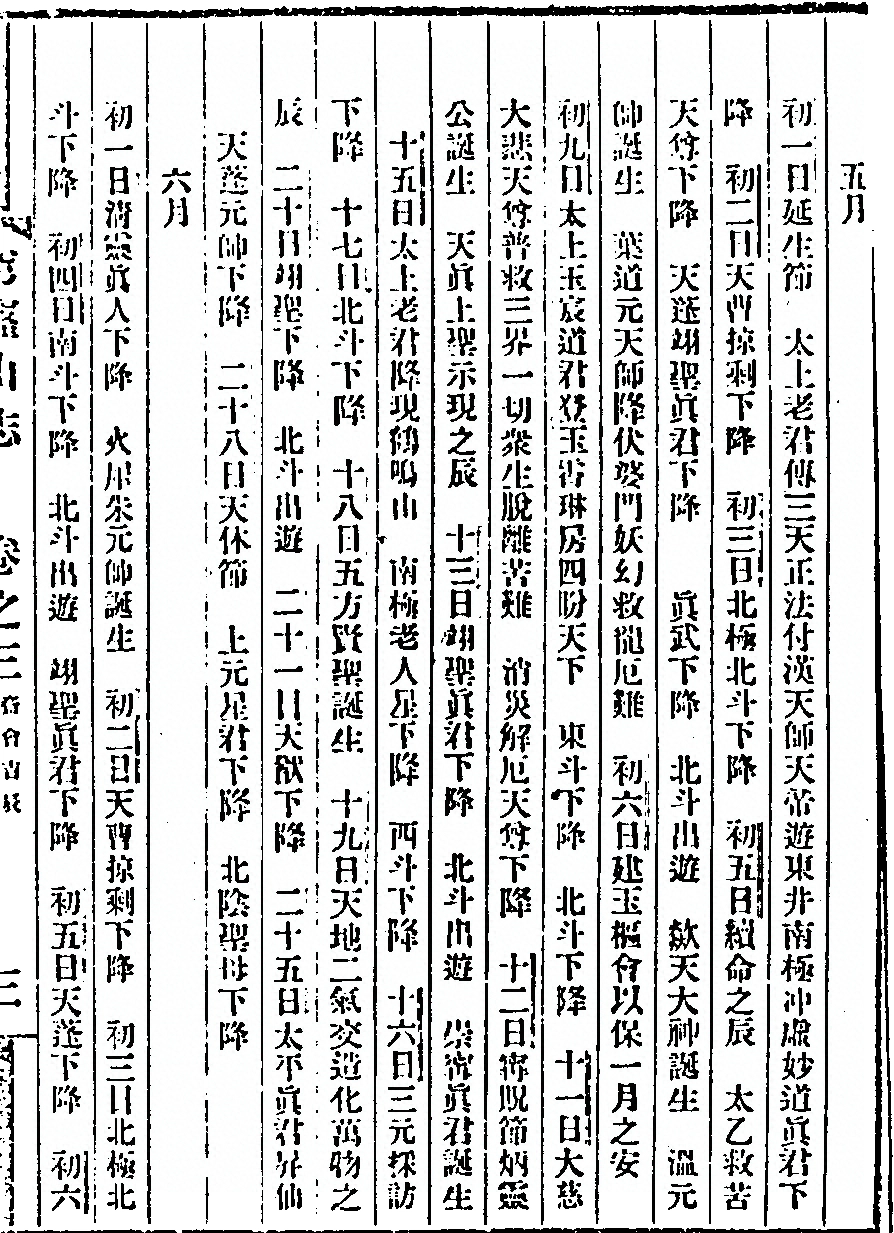 五月
初一日延生節　太上老君傳三天正法付漢天師天帝遊東井南極冲虛妙道眞君下
降　初二日天曹掠剩下降　初三日北極北斗下降　初五日續命之辰　太乙救苦
天尊下降　天蓬翊聖眞君下降　眞武下降　北斗出遊　歘天大神誕生　溫元
帥誕生　葉道元天師降伏婆門妖幻救龍厄難　初六日建玉樞會以保一月之安
初九日太上玉宸道君登玉霄琳房四盼天下　東斗下降　北斗下降　十一日大慈
大悲天尊普救三界一切衆生脫離苦難　消災解厄天尊下降　十二日寗貺節炳靈
公誕生　天眞上聖示現之辰　十三日翊聖眞君下降　北斗出遊　崇寗眞君誕生
十五日太上老君降現鶴鳴山　南極老人星下降　西斗下降　十六日三元採訪
下降　十七日北斗下降　十八日五方賢聖誕生　十九日天地二氣交造化萬物之
辰　二十日翊聖下降　北斗出遊　二十一日天猷下降　二十五日太平眞君昇仙
天蓬元帥下降　二十八日天休節　上元星君下降　北陰聖母下降
六月
初一日淸靈眞人下降　火犀朱元帥誕生　初二日天曹掠剩下降　初三日北極北
斗下降　初四日南斗下降　北斗出遊　翊聖眞君下降　初五日天蓬下降　初六
山志　卷之三　三